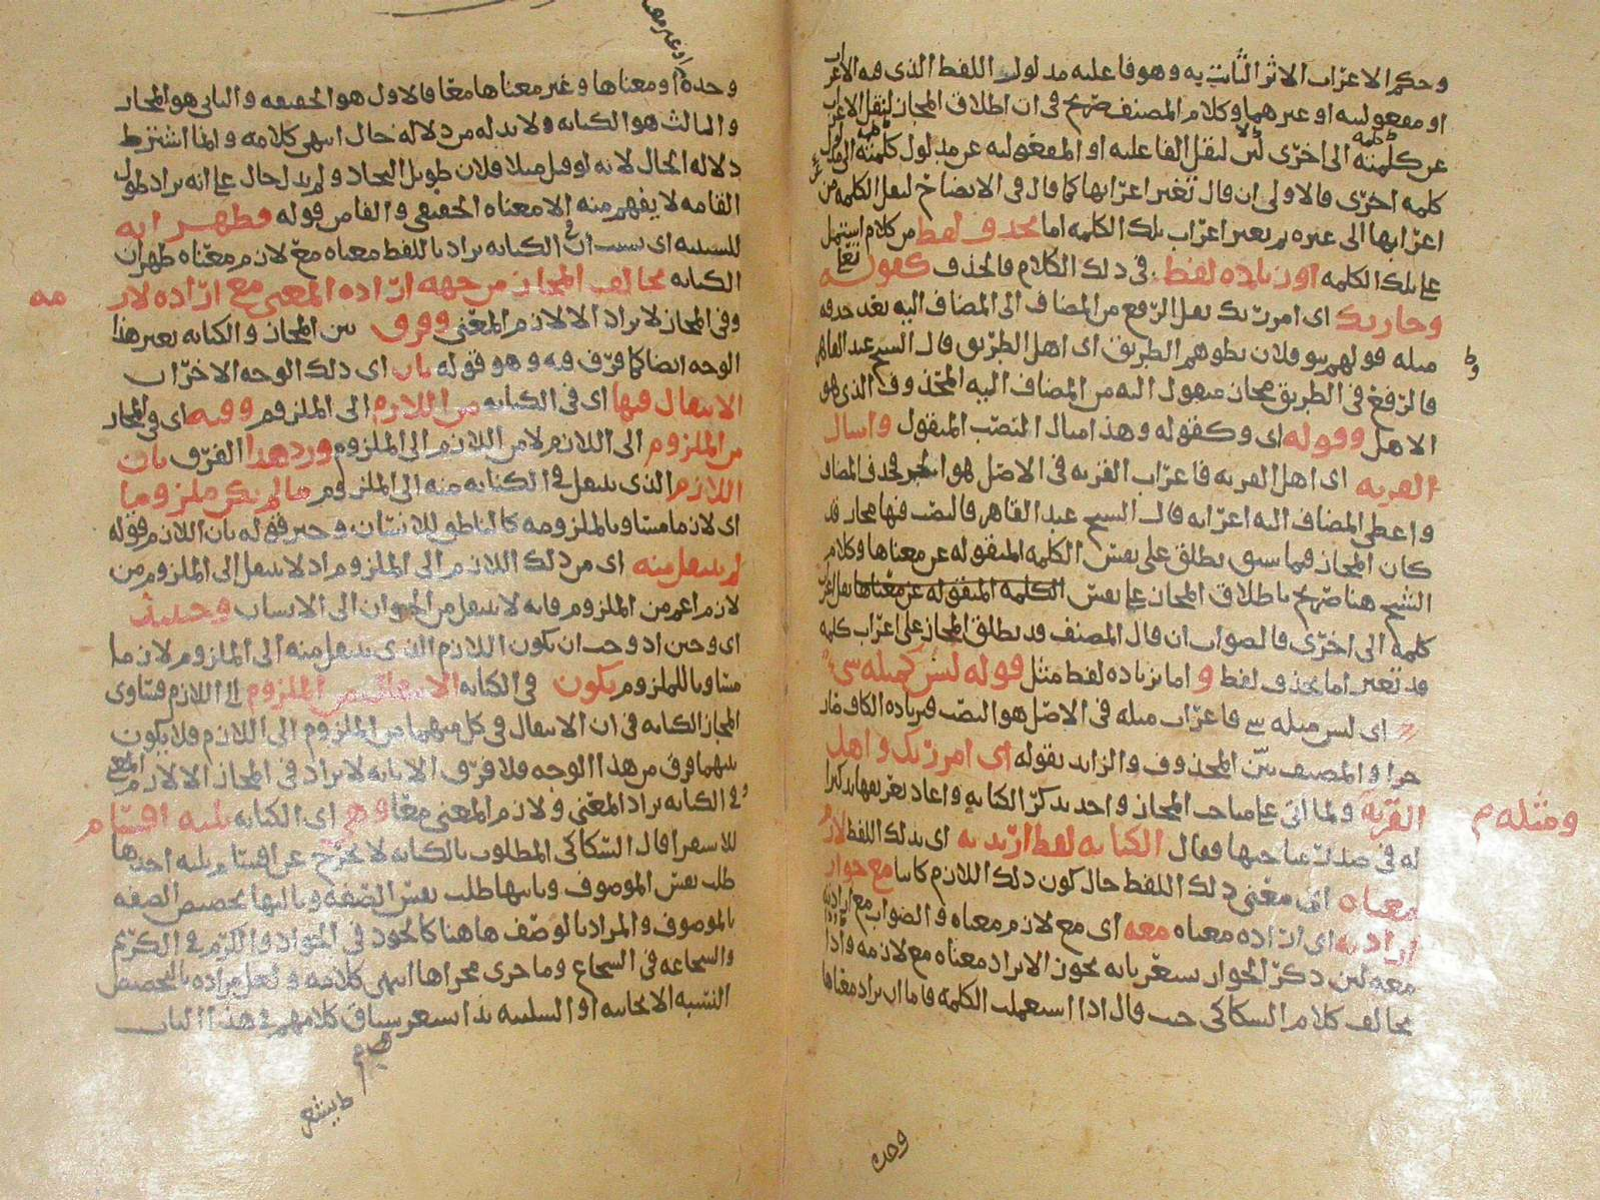 وحكم الاعراب الاثر الثابت به وهو فاعليه مدلول اللفظ الذى فيه الاعراب
او مفعوليته او غيرهما وكلام المصنف صريح فى ان اطلاق المجاز لنقل الاعراب
عن كلمته الى اخرى لنقل الفاعليه او المفعوليه عن مدلول كلمته الى مدلول
كلمه اخرى فالاولى ان قال تغير اعرابها كما قال فى الايضاح لنقل الكلمه من
اعرابها الى غيره ثم تغير اعراب تلك الكلمه اما بحذف لفظ من كلام اشتمل
على تلك الكلمه او زياده لفظ فى ذلك الكلام فالحذف كقوله تعا
وجا ربك اى امر ربك نقل الرفع من المضاف الى المضاف اليه بعد حذفه
مثله قولهم بنو فلان يطوهم الطريق اى اهل الطريق قال الشيخ عبد القاهر
فالرفع فى الطريق مجاز منقول اليه من المضاف اليه المحذوف الذى هو
الاهل وقوله اى وكقوله وهذا مثال النصب المنقول واسال
القريه اى اهل القريه فاعراب القريه فى الاصل هو الجر فحذف المضاف
واعطى المضاف اليه اعرابه قال الشيخ عبد القاهر فالنصب فيها مجاز قد
كان المجاز فيما سبق يطلق على نفس الكلمه المنقوله عن معناها وكلام
الشيخ هنا صريح باطلاق المجاز على نفس الكلمه المنقوله عن معناها نقل اعراب
كلمه الى اخرى فالصواب ان قال المصنف قد يطلق المجاز على اعراب كلمه
قد تغير اما بحذف لفظ و اما بزياده لفظ مثل قوله ليس كمثله شى
اى ليس مثله شى فاعراب مثله فى الاصل هو النصب فبزياده الكاف صار
جرا والمصنف بين المحذوف والزايد بقوله اى امر ربك واهل
القريه ولما اتى على مباحث المجاز واحد بذكر الكنايه واعاد تعريفها تذكيرا
له فى صدر مباحثها فقال الكنايه لفظ اريد به اى بذلك اللفظ لازم
معناه اى معنى ذلك اللفظ حال كون ذلك اللازم كاينا مع جواز
ارادته اى اراده معناه معه اى مع لازم معناه والصواب مع اراده
معه لان ذكر الجواز يشعر بانه يجوز الا يراد معناه مع لازمه واذا
يخالف كلام السكاكى حيث قال اذا استعملت الكلمه فاما ان يراد معناها
ومثله م
وحده
وحده او معناها وغير معناها معا فالاول هو الحقيقه والثانى هو المجاز
والثالث هو الكنايه ولا بد له من دلاله حال انتهى كلامه وانما اشترط
دلاله الحال لانه لو قيل مثلا فلان طويل النجاد ولم يدل حال على انه يراد طول
القامه لا يفهم منه الا معناه الحقيقى والفا من قوله فظهر انه
للسببيه اى بسبب ان فى الكنايه يراد باللفظ معناه مع لازم معناه ظهر ان
الكنايه يخالف المجاز من جهه اراده المعنى مع اراده لازمه
وفى المجاز لا يراد الا لازم المعنى وفرق بين المجاز والكنايه بغير هذا
الوجه ايضا كما فرق فيه وهو قوله بان اى ذلك الوجه الاخر ان
الانتقال فيها اى فى الكنايه من اللازم الى الملزوم وفيه اى فى المجاز
من الملزوم الى اللازم لا من اللازم الى الملزوم ورد هذا الفرق بان
اللازم الذى ينتقل فى الكنايه منه الى الملزوم ما لم يكن ملزوما
اى لازما مساويا لملزومه كالناطق للانسان وخبر قوله بان اللازم قوله
لم ينتقل منه اى من ذلك اللازم الى الملزوم اذ لا ينتقل الى الملزوم من
لازم اعم من الملزوم فانه لا ينتقل من الحيوان الى الانسان وحينئذ
اى وحين اذ وجب ان يكون اللازم الذى ينتقل منه الى الملزوم لازما
مساويا للملزوم يكون فى الكنايه الانتقال من الملزوم الى اللازم فتساوى
المجاز الكنايه فى ان الانتقال فى كل منهما من الملزوم الى اللازم فلا يكون
بينهما فرق من هذا الوجه فلا فرق الا بانه لا يراد فى المجاز الا لازم المعنى
وفى الكنايه يراد المعنى ولازم المعنى معا وهى اى الكنايه ثلثه اقسام
للاستقرا قال السكاكى المطلوب بالكنايه لا يخرج عن اقسام ثلثه احدها
طلب نفس الموصوف وثانيها طلب نفس الصفه وثالثها تخصيص الصفه
بالموصوف والمراد بالوصف هاهنا كالجود فى الجواد والكرم فى الكريم
والشجاعه فى الشجاع وما جرى مجراها انتهى كلامه ولعل مراده بالتخصيص
النسبه الايجابيه او السلبيه بدا يشعر سياق كلامهم فى هذا الباب